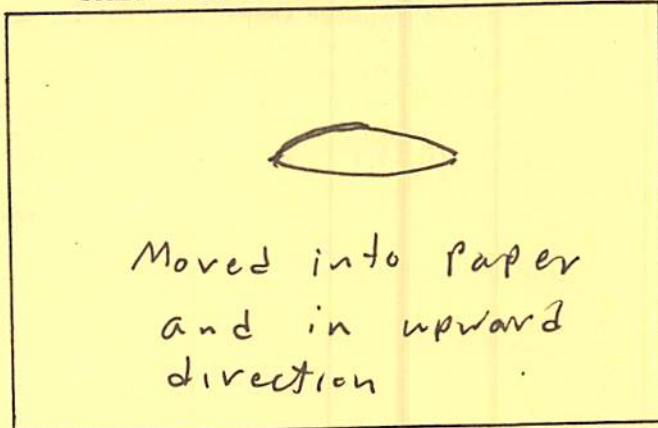 Moved into paper
and in upward
direction